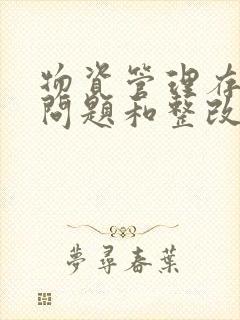 物資管理存
問題和整改
夢尋春葉